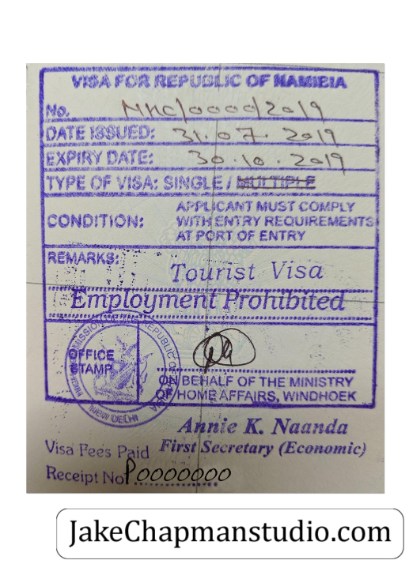 VISA FOR REPUBLIC OF NAMIBIA
No. NHC/0000/2019
DATE ISSUED: 31.07.2019
EXPIRY DATE: 30.10.2019
TYPE OF VISA: SINGLE / MULTIPLE
CONDITION: APPLICANT MUST COMPLY
WITH ENTRY REQUIREMENTS
AT PORT OF ENTRY
REMARKS:
Tourist Visa
Employment Prohibited
OFFICE
STAMP
NEW DELHI
ON BEHALF OF THE MINISTRY
OF HOME AFFAIRS, WINDHOEK
Annie K. Naanda
Visa Fees Paid First Secretary (Economic)
Receipt No P0000000
JakeChapmanstudio.com